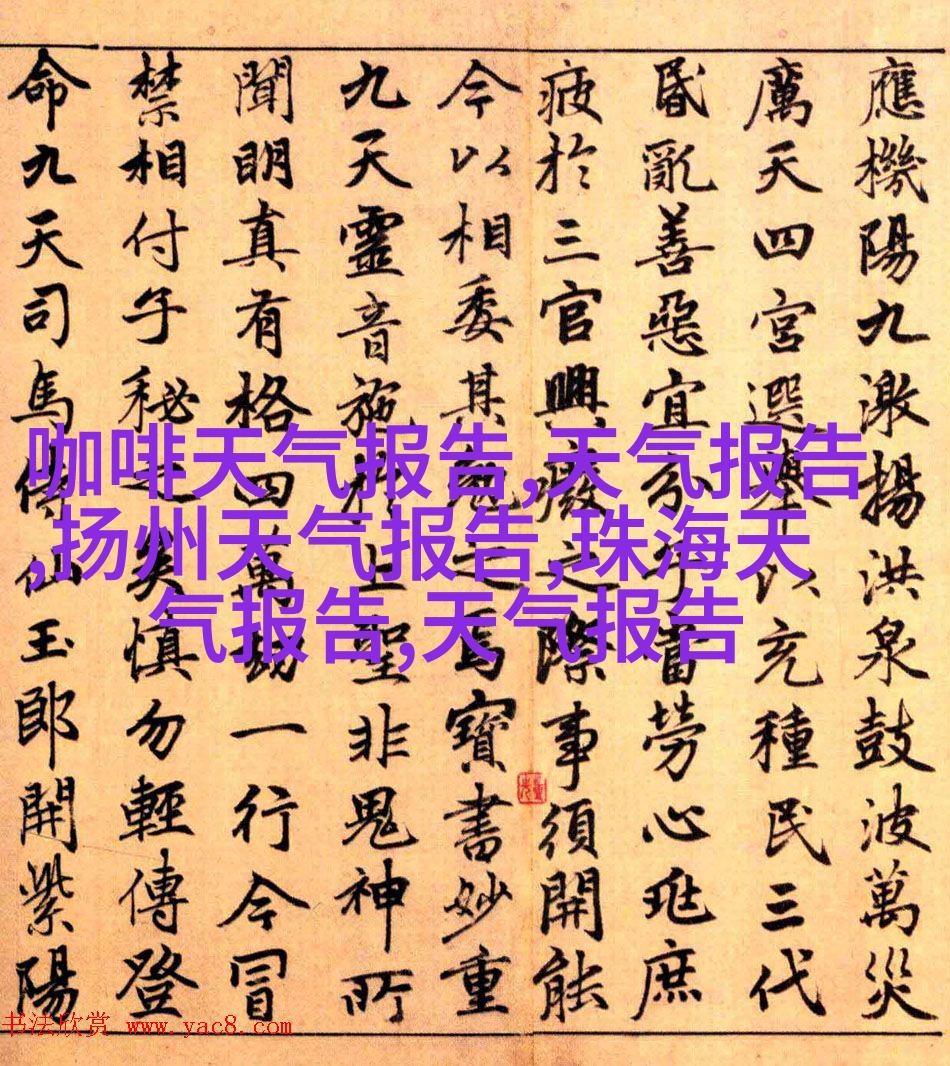 應機陽九激揚洪泉鼓波萬災
厲天四宮選舉以充種民三代
昏亂善惡宜分子當勞心兆庶
疲於三官興廢之際事須開能
今以相委其勉之焉寶書妙重
九天靈音施用上聖非鬼神所
聞明真有格四萬劫一行今冒
禁相付子秘之矣慎勿輕傳登
命九天司馬侍仙玉郎開紫陽
咖啡天气报告,天气报告
,扬州天气报告,珠海天
气报告,天气报告
书法欣赏 www.yac8.com